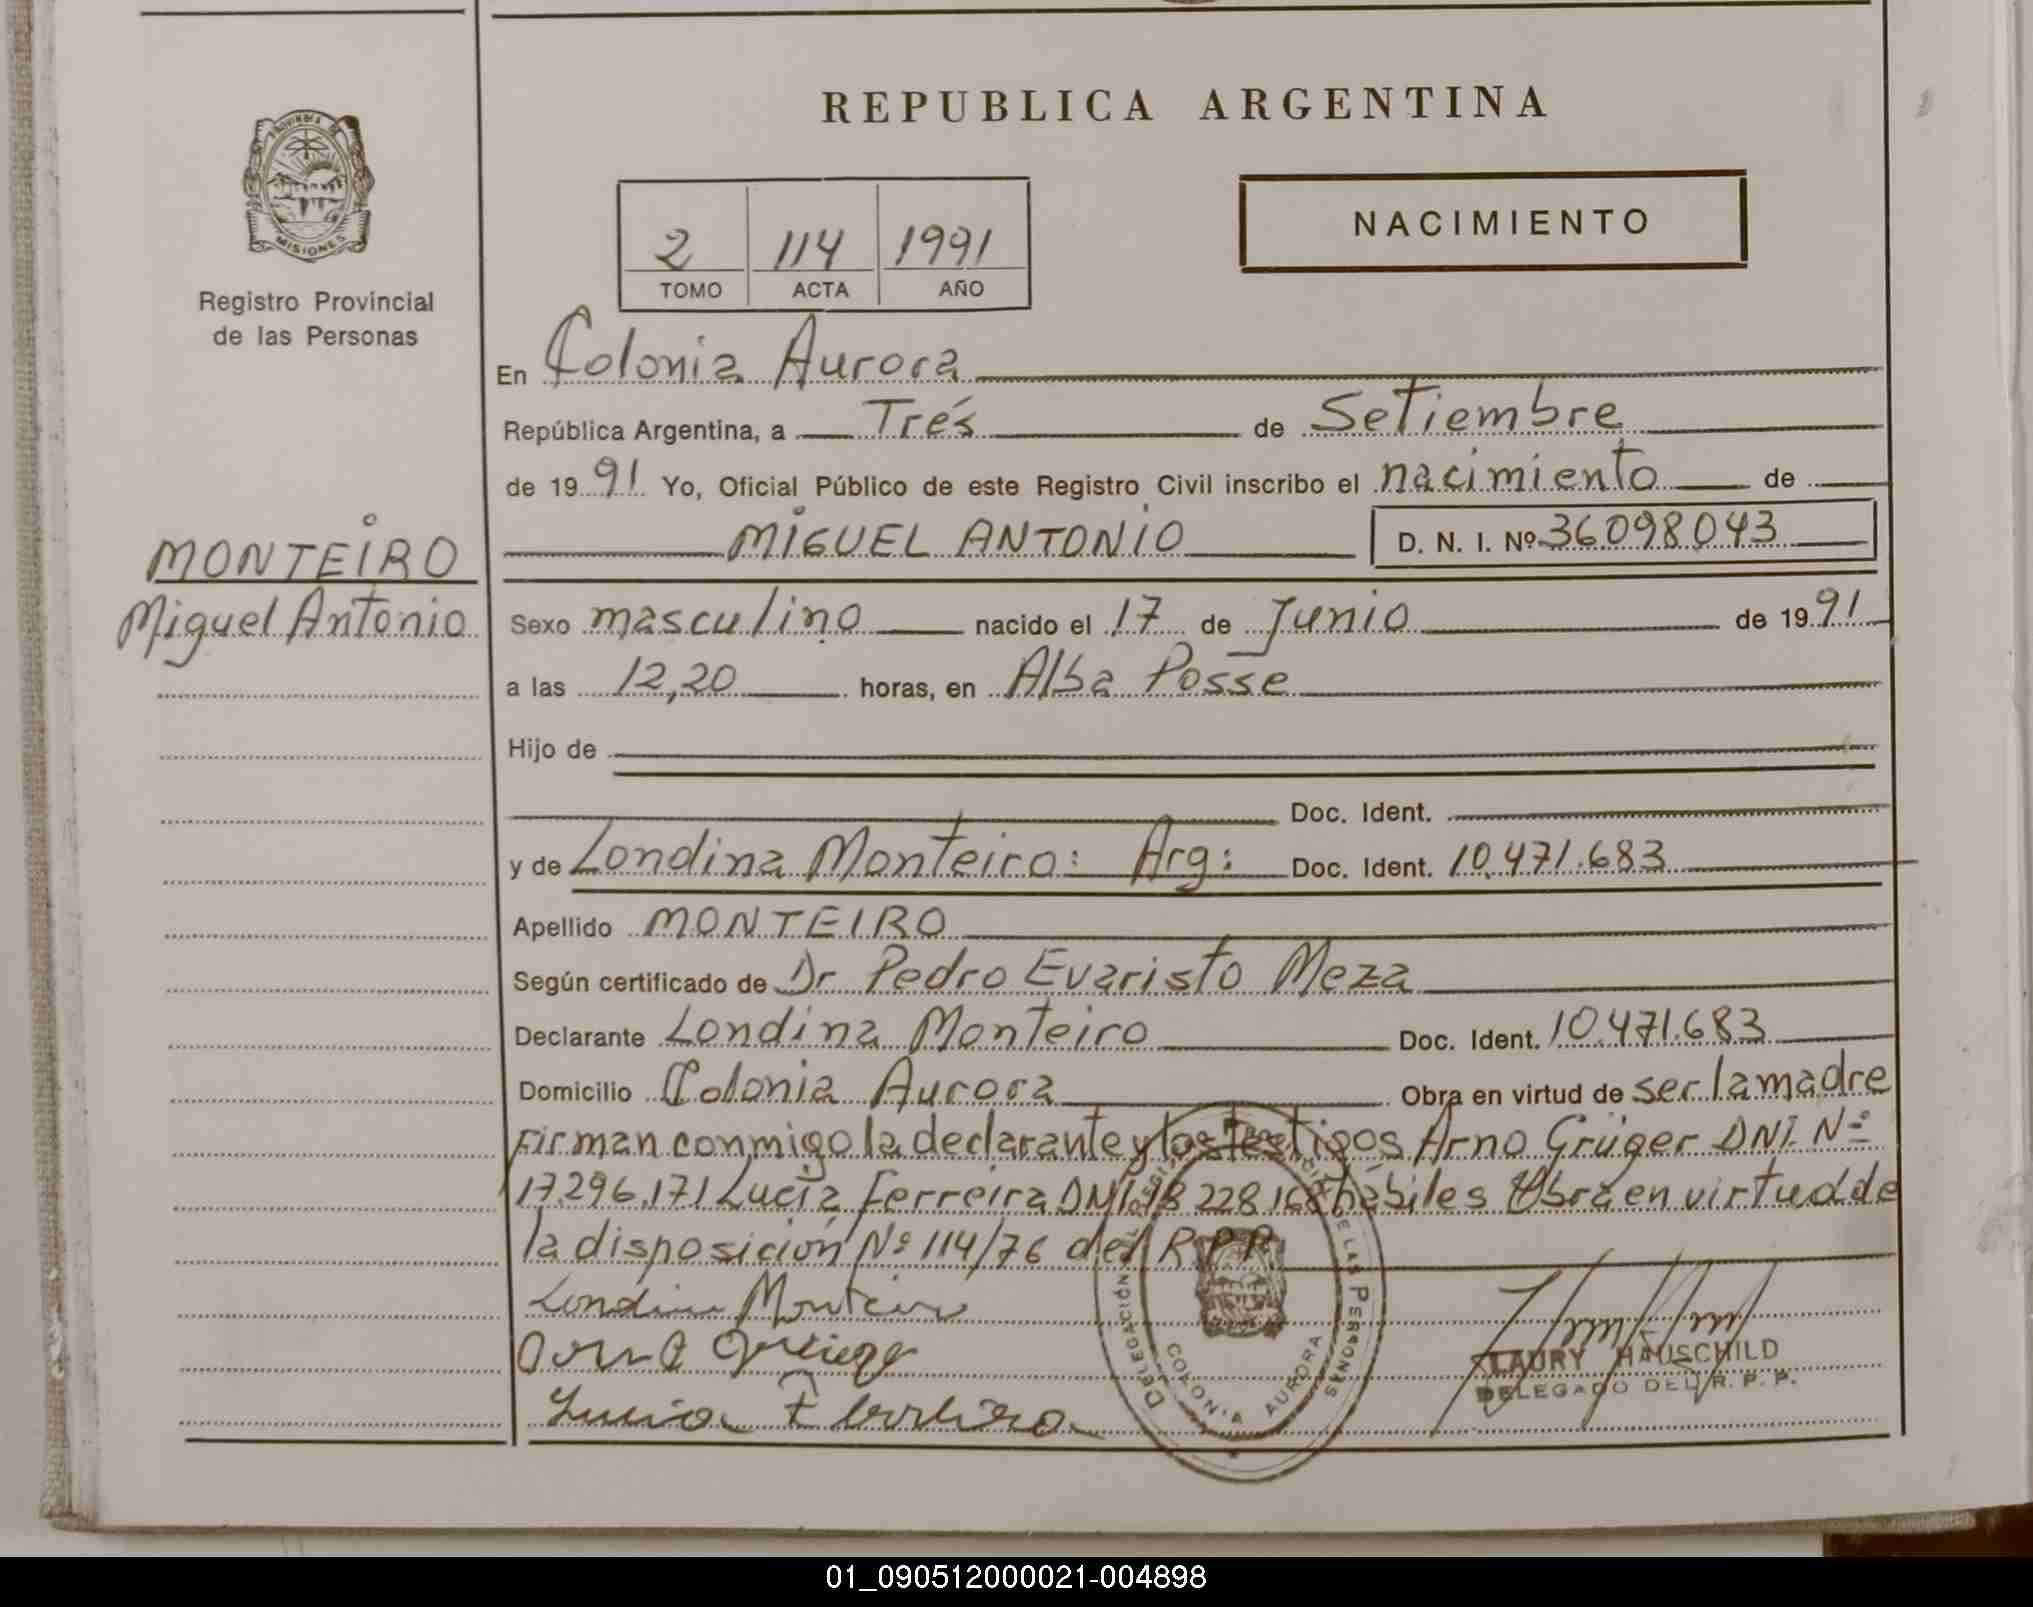 REPUBLICA ARGENTINA
PROVINCIA DE
MISIONES
Registro Provincial
de las Personas
NACIMIENTO
2 114 1991
TOMO ACTA AÑO
En Colonia Aurora
República Argentina, a Trés de Setiembre
de 1991 Yo, Oficial Público de este Registro Civil inscribo el nacimiento de
MIGUEL ANTONIO D. N. I. Nº 36098043
MONTEIRO
Miguel Antonio
Sexo masculino nacido el 17 de Junio de 1991
a las 12,20 horas, en Alba Posse
Hijo de
Doc. Ident.
y de Londina Monteiro: Arg: Doc. Ident. 10.471.683
Apellido MONTEIRO
Según certificado de Dr Pedro Evaristo Meza
Declarante Londina Monteiro Doc. Ident. 10.471.683
Domicilio Colonia Aurora Obra en virtud de ser la madre
Firman conmigo la declarante y los testigos Arno Grüger DNI. Nº
17.296.171 Lucía Ferreira DNI. 18 228 168 hábiles Obra en virtud de
la disposición Nº 114/76 del R.P.P.
Londina Monteiro
Lucia Ferreira
DELEGACIÓN DE LAS PERSONAS
COLONIA AURORA
LAURY HAUSCHILD
DELEGADO DEL R. P. P.
01_090512000021-004898